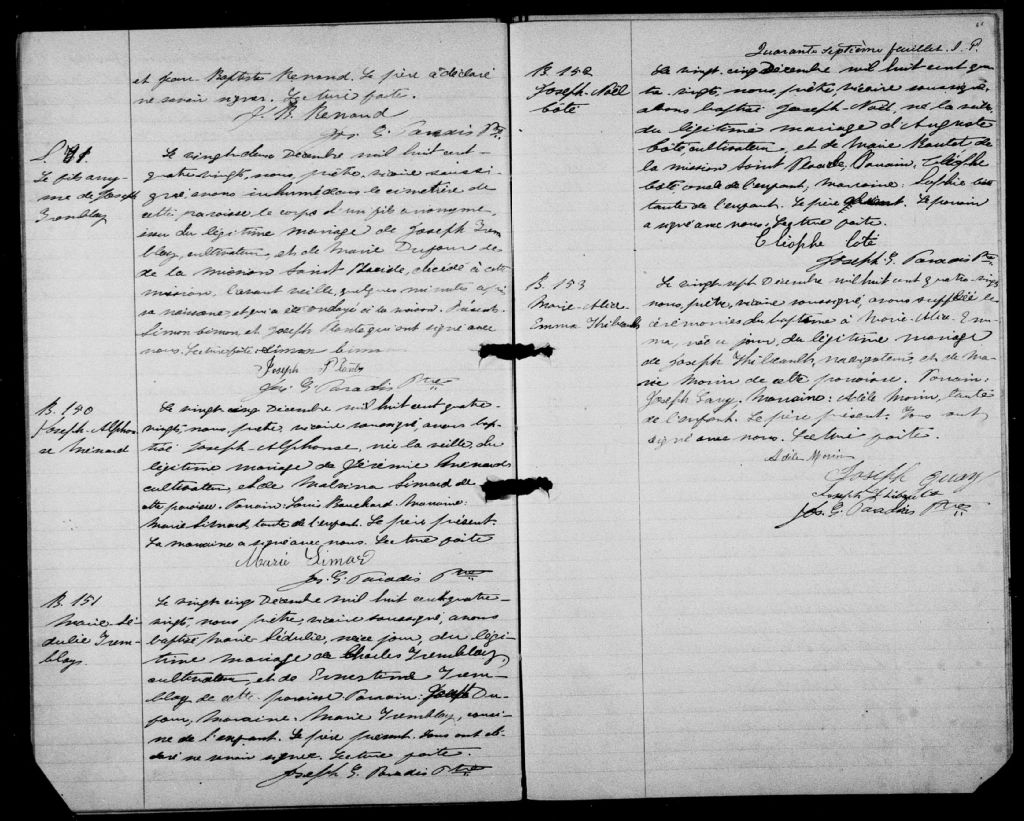 et Jean Baptiste Renaud. Le père a déclaré
ne savoir signer. Lecture faite.
J. B. Renaud
Jos. G. Paradis Ptre
S.
Le fils anony-
me de Joseph
Tremblay
Le vingt-deux Décembre mil huit cent
quatre-vingt, nous, prêtre, vicaire soussi-
gné, avons inhumé dans le cimetière de
cette paroisse, le corps d'un fils anonyme,
issu du légitime mariage de Joseph Trem
blay, cultivateur, et de Marie Dufour de
de la mission Saint Placide, décédé à cette
mission, l'avant veille, quelques minutes après
sa naissance et qui a été ondoyé à la maison. Présents:
Simon Simon et Joseph Plante qui ont signé avec
nous. Lecture faite. Simon
Joseph Plante
Jos. G. Paradis Ptre
B. 150
Joseph-Alphon
se Ménard
Le vingt cinq Décembre mil huit cent quatre-
vingt, nous, prêtre, vicaire soussigné, avons bap-
tisé Joseph-Alphonse, né la veille, du
légitime mariage de Jérémie Ménard
cultivateur, et de Malvina Simard de
cette paroisse. Parrain: Louis Bouchard. Marraine:
Marie Simard, tante de l'enfant. Le père présent.
La marraine a signé avec nous. Lecture faite
Marie Simard
Jos. G. Paradis Ptre
B. 151
Marie-Sé-
dulie Trem-
blay
Le vingt-cinq Décembre mil huit cent quatre-
vingt, nous prêtre, vicaire soussigné, avons
baptisé Marie-Sédulie, née ce jour, du légi-
time mariage de Charles Tremblay,
cultivateur, et de Ernestine Trem-
blay de cette paroisse Parrain: Joseph Du-
four, Marraine: Marie Tremblay, cousi-
ne de l'enfant. Le père présent. Tous ont dé-
claré ne savoir signer. Lecture faite.
Joseph G. Paradis Ptre
Quarante septième feuillet. J. P.
B. 152
Joseph-Noël
Côté
Le vingt-cinq Décembre mil huit cent qua
tre-vingt, nous, prêtre, vicaire soussigné,
avons baptisé Joseph-Noël, né la veille
du légitime mariage d'Auguste
Côté cultivateur, et de Marie Boutet de
la mission Saint Placide, Parrain, Cléophe
Côté oncle de l'enfant, Marraine: Sophie Côté
tante de l'enfant. Le père absent. Le parrain
a signé avec nous; Lecture faite.
Cléophe Côté
Joseph G. Paradis Ptre
B. 153
Marie-Alice-
Emma Thibeault
Le vingt-sept Décembre mil huit cent quatre-vingt
nous, prêtre, vicaire soussigné, avons suppléé les
cérémonies du baptême à Marie-Alice-Em
ma, née ce jour, du légitime mariage
de Joseph Thibeault, navigateur, et de Ma-
rie Morin de cette paroisse. Parrain:
Joseph Marraine: Adèle Morin, tante
de l'enfant. Le père présent. Tous ont
signé avec nous. Lecture faite.
Adèle Morin
Joseph
Joseph
Jos. G. Paradis Ptre